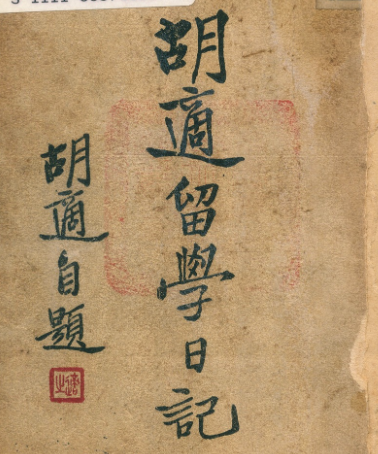 胡適留學日記
胡適自題